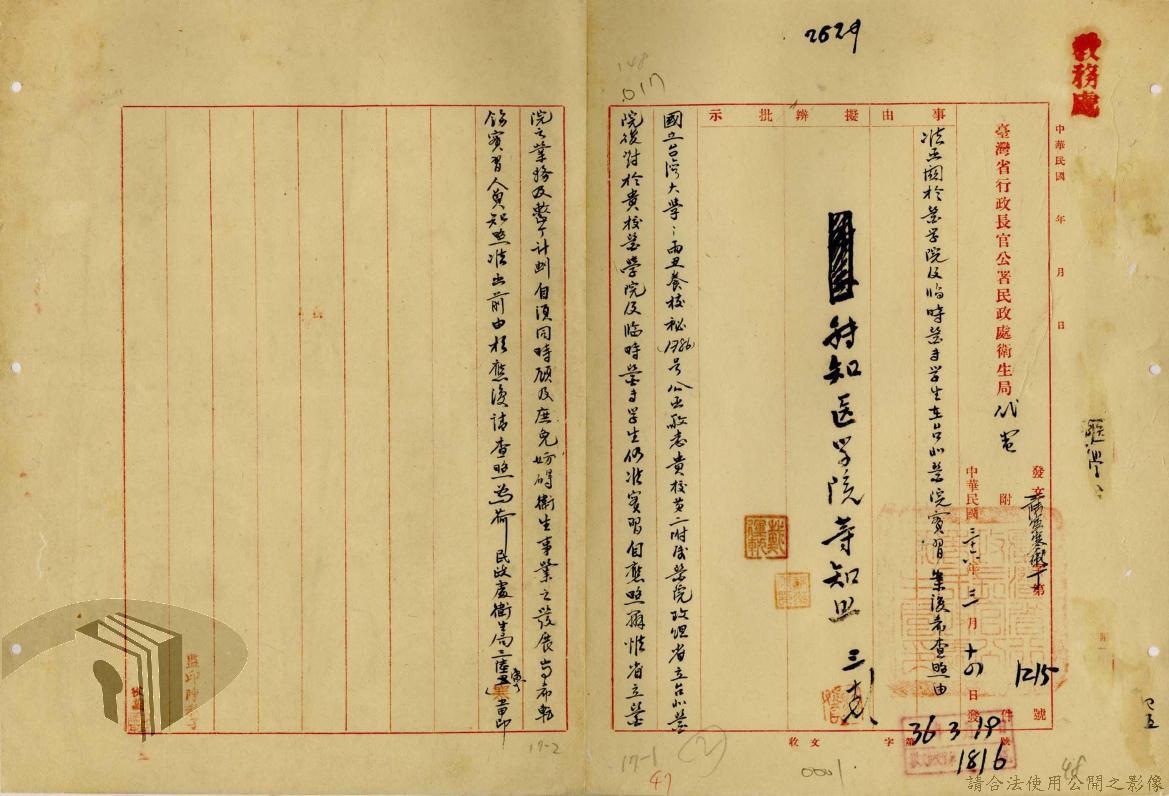 2629
教務處
148
017
中華民國 年 月 日
臺灣省行政長官公署民政處衛生局代電
發文
第1215號
附件
中華民國三十六年三月十四日發
36 3 19
1816
事由 擬辦 批示
准函關於醫學院及臨時醫專學生在台北醫院實習案復希查照由
特知医学院等知照
國立台湾大學:丙丑養校秘(1786)号公函敬悉貴校第二附屬醫院改組省立台北醫
院後對於貴校醫學院及臨時醫專學生仍准實習自應照辦惟省立醫
院之業務及整个計劃自須同時顧及庶免妨碍衛生事業之發展尚希轉
飭實習人員知照准函前由相應復請查照為荷 民政處衛生局
收文 字 號
17-1
17-2
47
48
0001
請合法使用公開之影像